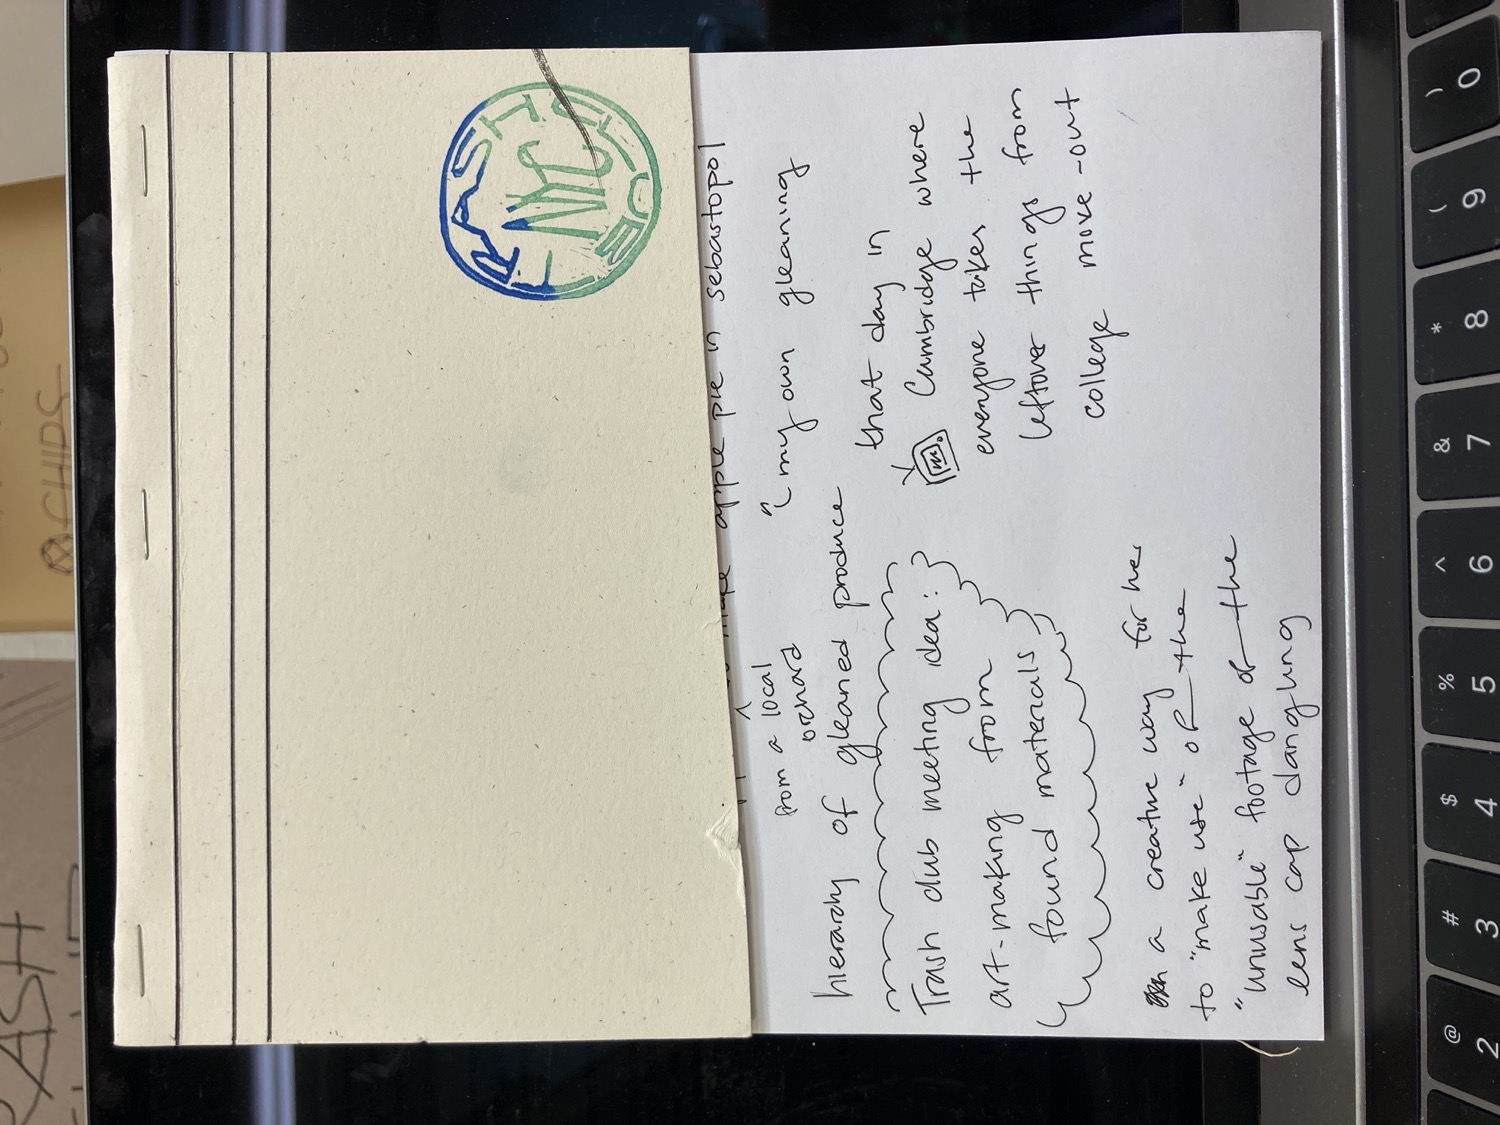 apple pie in sebastopol
from a local
orchard
my own gleaning
hierarchy of gleaned produce
Trash club meeting idea:
art-making from
found materials
that day in
Cambridge where
everyone takes the
leftover things from
college move-out
a creative way for her
to "make use" of the
"unusable" footage of the
lens cap dangling
TRASH CLUB
RASH
CHIPS
@ 2
# 3
$ 4
% 5
^ 6
& 7
* 8
( 9
) 0